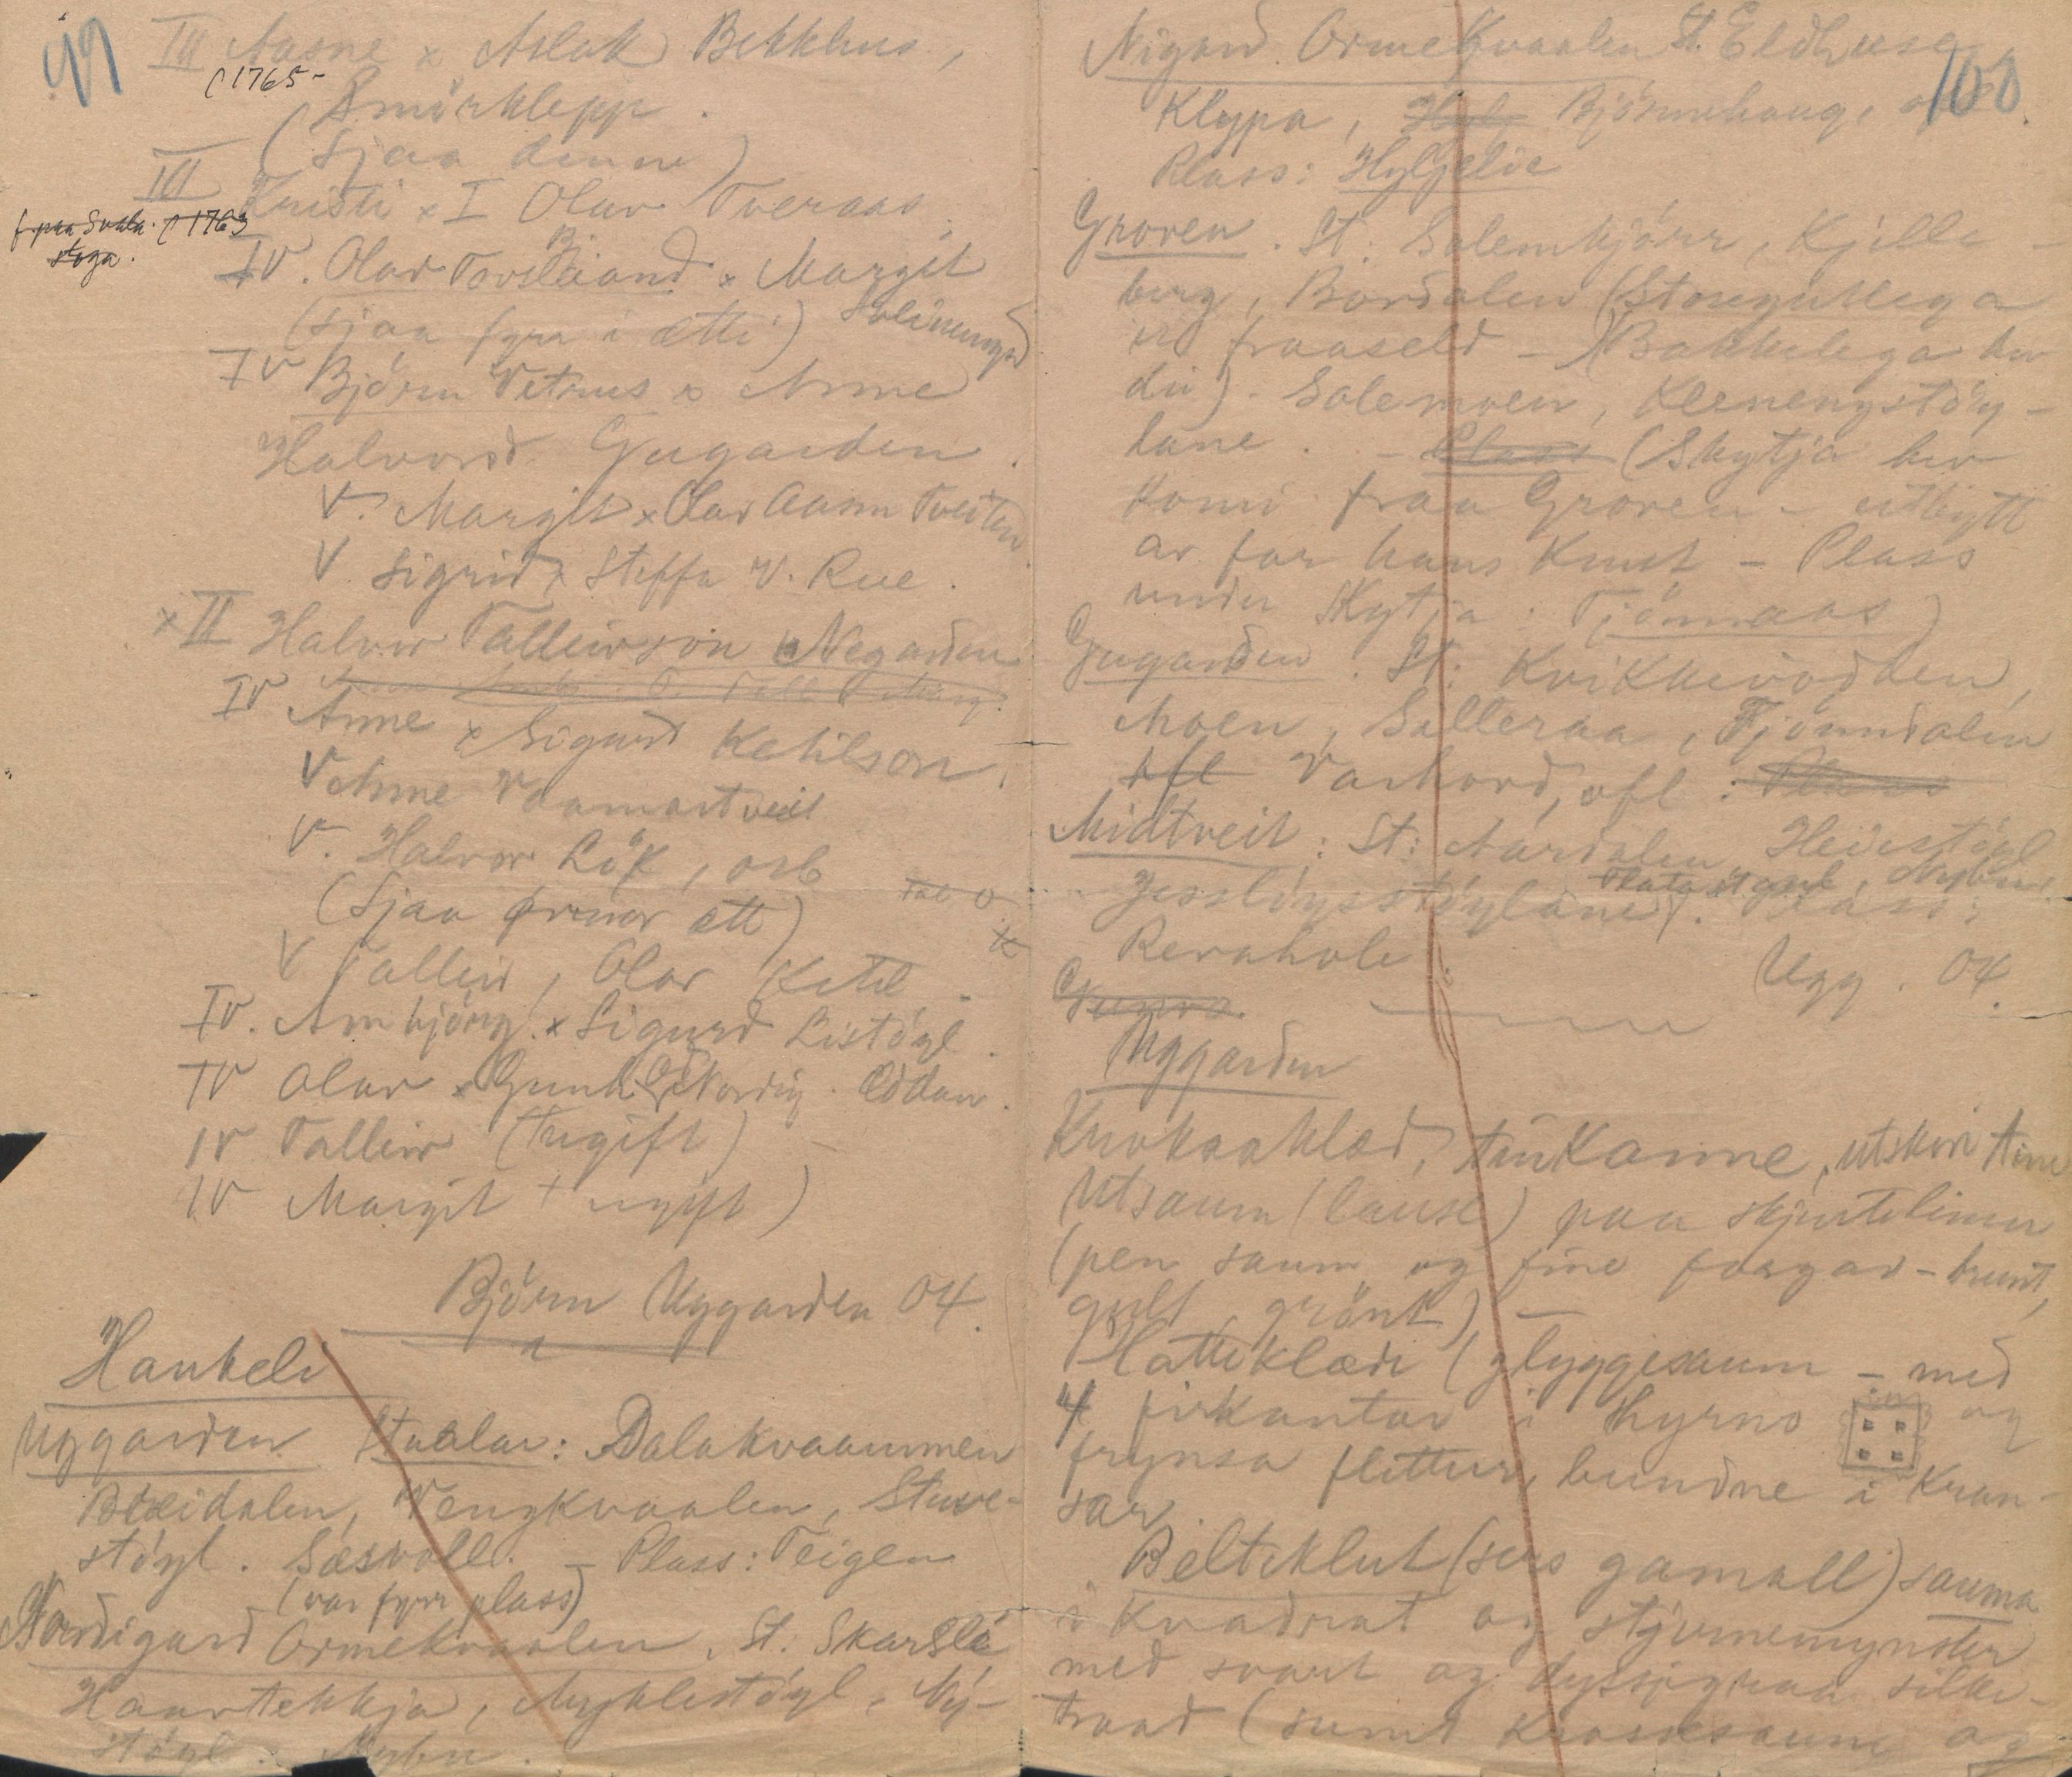 99
III Aasne x Aslak Bekkhus,
( 1765-
Smörklepp.
(Sjaa denne)
III Kristi x I Olav Tveraas.
f. paa Svala- ( 1763
stoga.
IV. Olav Torsland x Margit
(Sjaa fyrr i ætti)
IV Björn Vetrus x Anne
Halvord. Gugarden.
V. Margit x Olav Aasm Tveiten
V Sigrid x Steffa V. Rue.
x II Halvor Talleivson Negarden
IV Anne x Sigurd Ketilson.
V Anne Vaamartveit
V. Halvor Lök, osb
(Sjaa ætt)
V Talleiv, Olav Ketil
IV. Annbjörg x Sigurd Listöyl.
IV Olav x Gunh. Nordig. Oddan.
IV Talleiv (ugift)
IV Margit + ugift)
Björn Uggarden 04.
Haukeli
Uggarden Stualar: Dalakvaammen
Breidalen, Vengkvaalen, Stuve-
stöyl. Sæsvoll. – Plass: Teigen
(var fyrr plass)
Nordigard Ormekvaalen. St. Skarsli
Haartekkja, Myklestöyl, Ny-
stöyl. Nybu.
100
Nigard Ormekvaalen St. Eldhuse
Klypa, Björnehaug,
Plass: Hyljelie
Groven. St: Solemkjörr, Kjille-
berg, Bordalen (Stongullega
er fraaseld –) (Bakkelega hev
dei). Solemoen, Kleningstöy-
lane. – Plass (Skytja hev
komi fraa Groven – utbytt
av far hans Knut – Plass
under Skytja: Tjönnaas)
Gugarden. St: Kvikkevodden,
Moen, Selleraa, Tjönndalen
ofl Varhovd, ofl: Plass
Midtveit: St: Aardalen, Heiestöyl
Jesslöysstöylane). Plass:
Revahole
Ugg. 04.
Uggarden
Krokaaklæd, tinkanne, utskori tine
Utsaum (lause) paa skjortelinen
(pen saum og fine fargar – brunt,
gult, grönt) –
Hatteklæde (glyggjesaum – med
4 firkantar i hyrno og
frynsa flettur, bundne i kran-
sar.
Belteklut (sers gamall) sauma
i kvadrat og stjernemynster
med svart og silke-
traad (sumt krossaum og